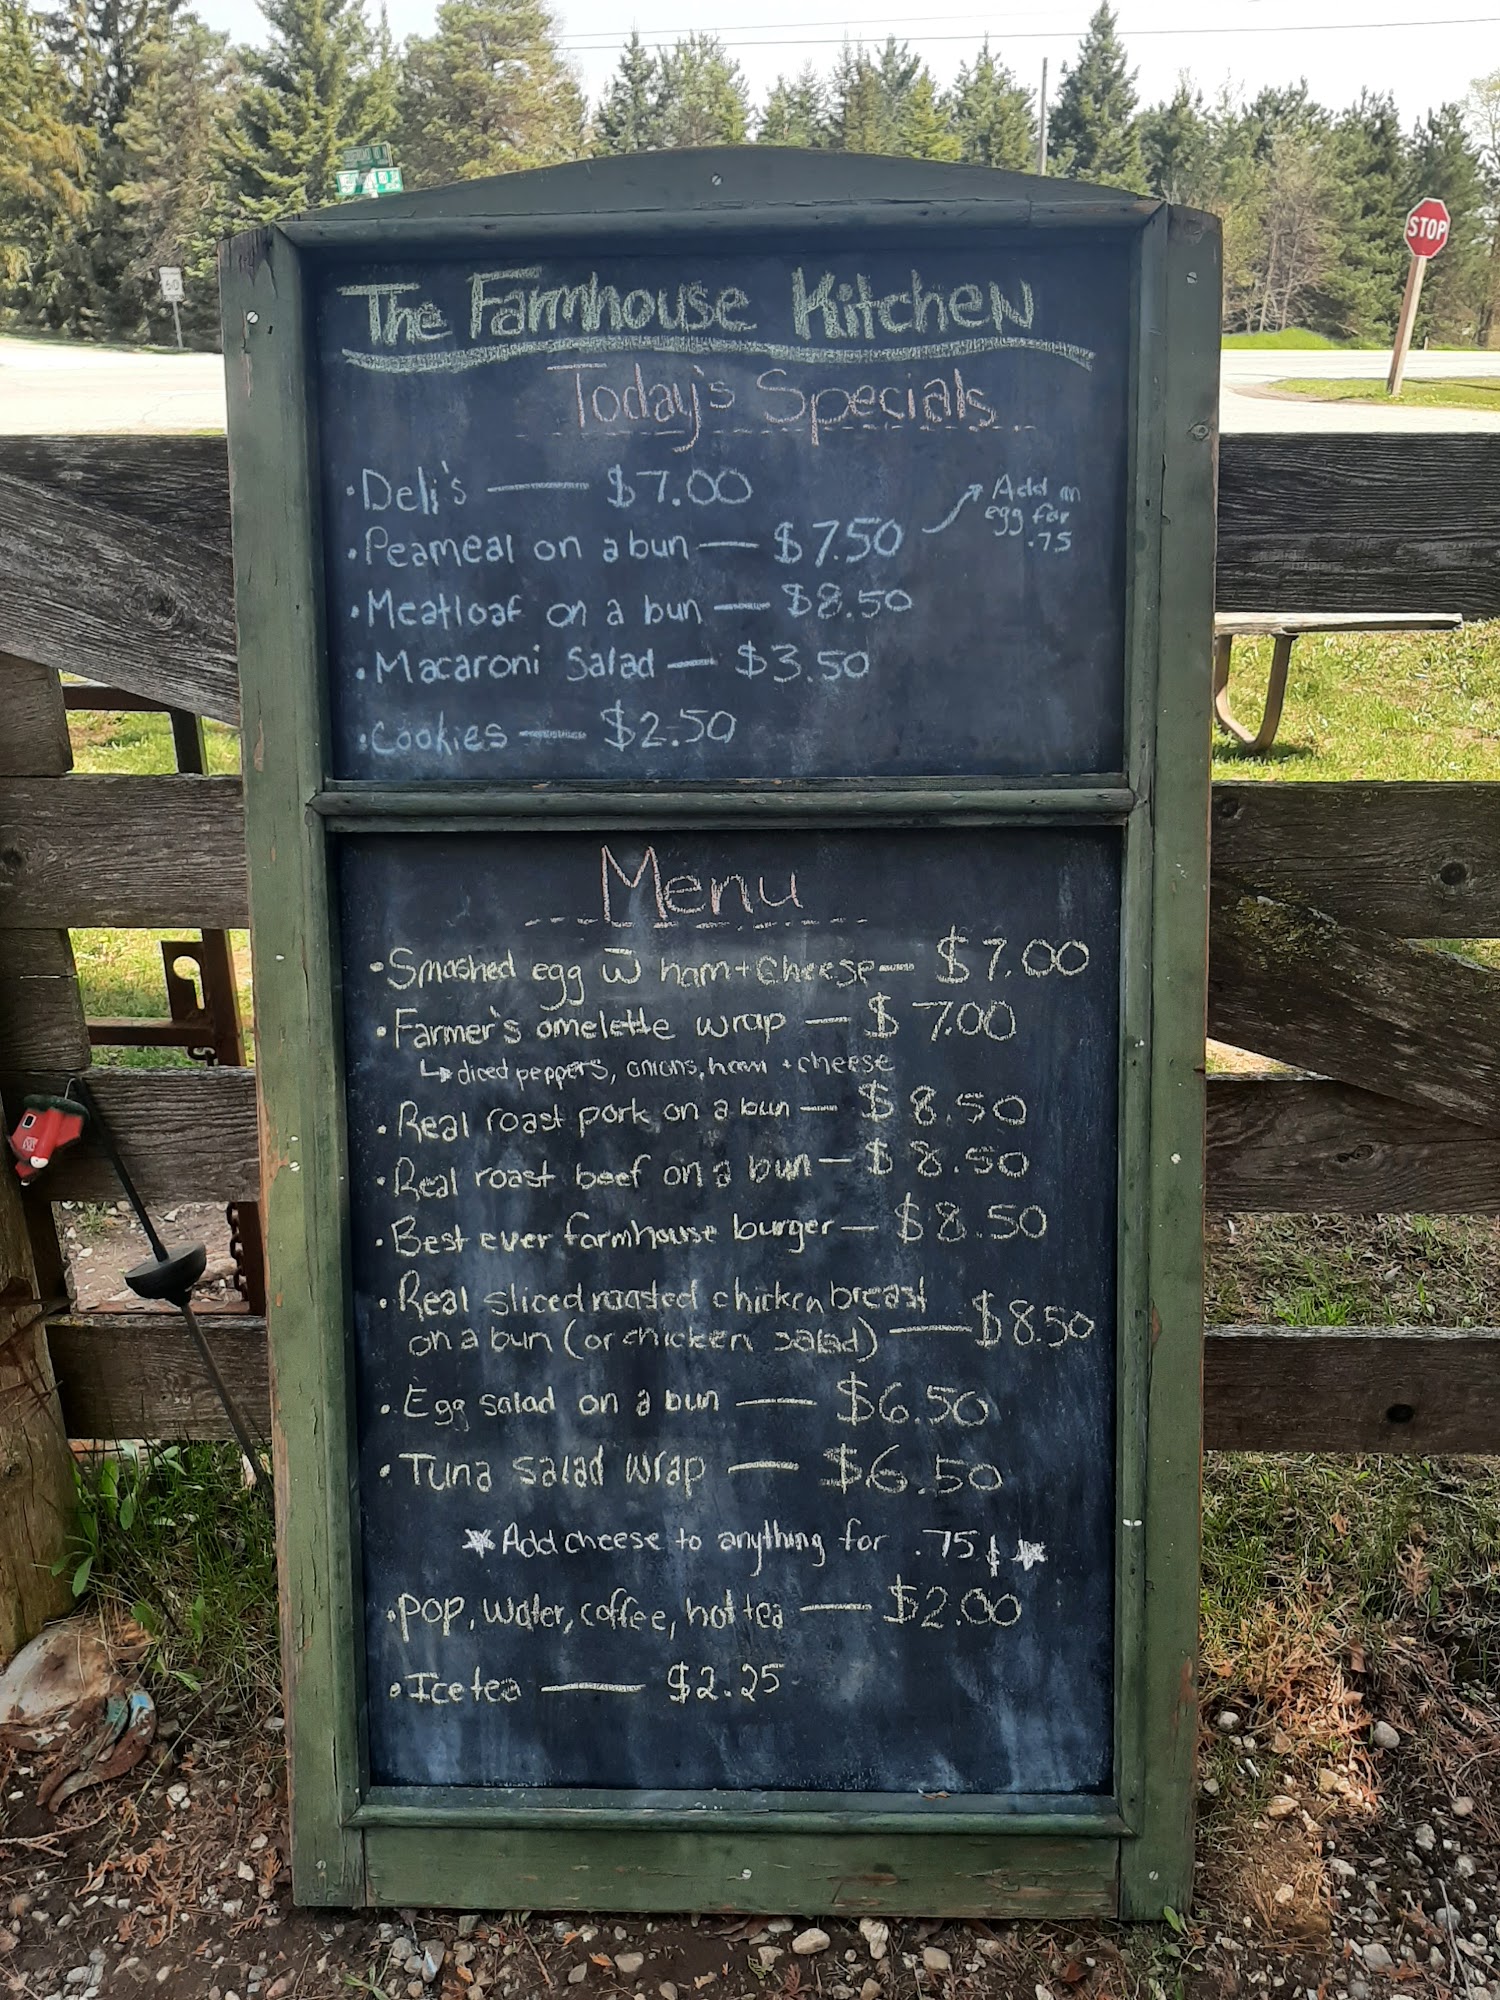 The Farmhouse Kitchen
Today's Specials
• Deli's — $7.00
• Peameal on a bun — $7.50
Add an
egg for
.75
• Meatloaf on a bun — $8.50
• Macaroni Salad — $3.50
• Cookies — $2.50
Menu
• Smashed egg w̅ ham + Cheese — $7.00
• Farmer's omelette wrap — $7.00
↳ diced peppers, onions, ham + cheese
• Real roast pork on a bun — $8.50
• Real roast beef on a bun — $8.50
• Best ever farmhouse burger — $8.50
• Real sliced roasted chicken breast
on a bun (or chicken salad) — $8.50
• Egg salad on a bun — $6.50
• Tuna salad wrap — $6.50
★ Add cheese to anything for .75¢ ★
• POP, water, coffee, hot tea — $2.00
• Ice tea — $2.25
STOP
60